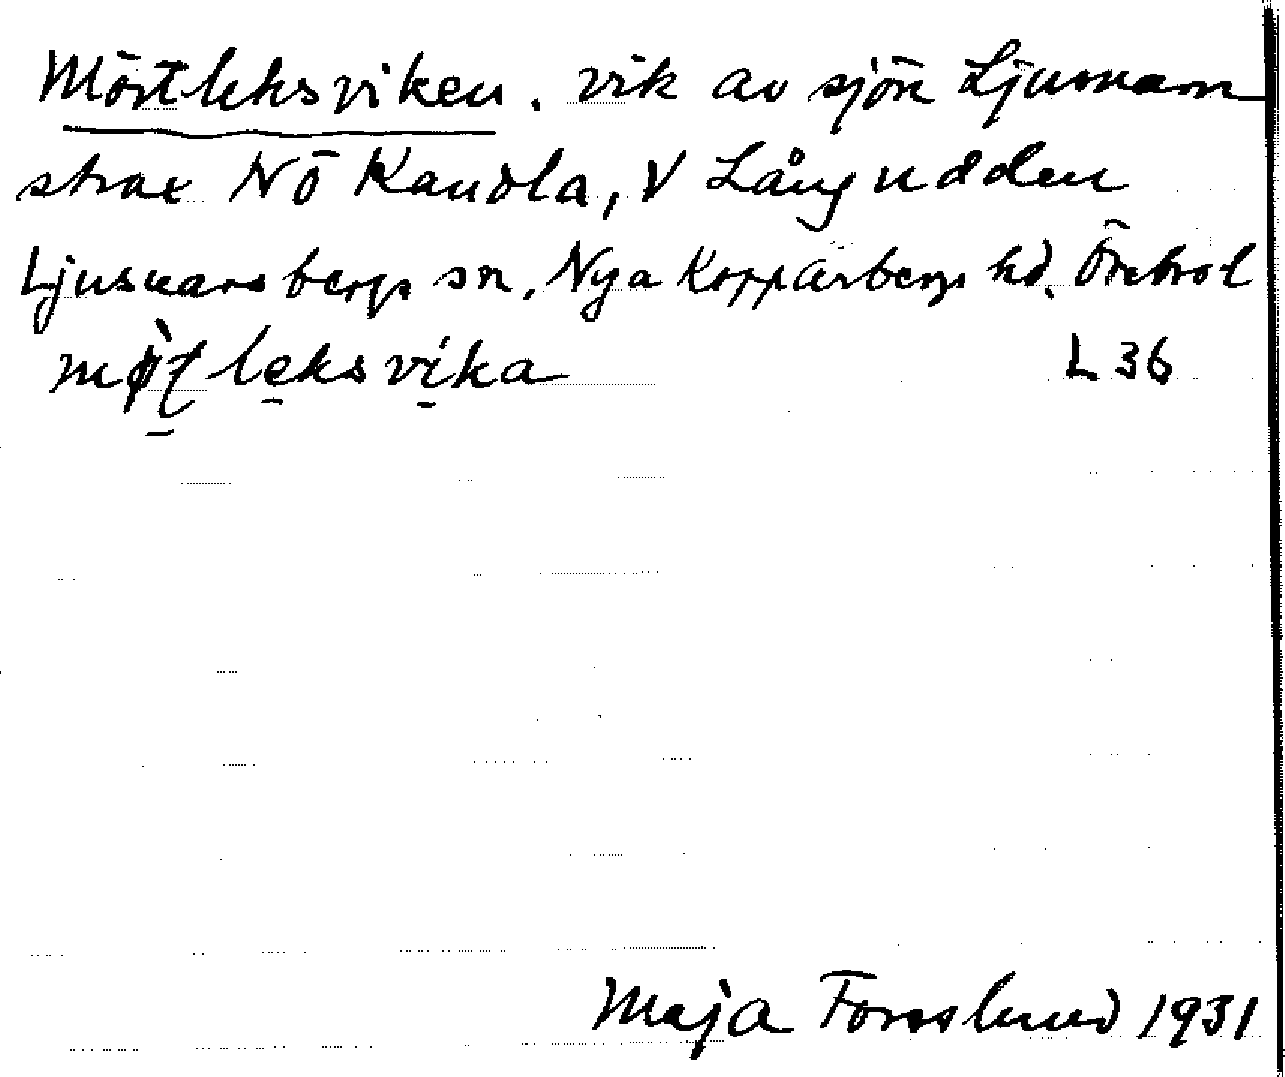 Mörtleksviken. vik av sjön Ljusnaren
strax NÖ Kandla, V Långudden
Ljusnarsbergs sn, Nya Kopparbergs hd. Örebro l
leksvika L 36
Maja Forsslund 1931